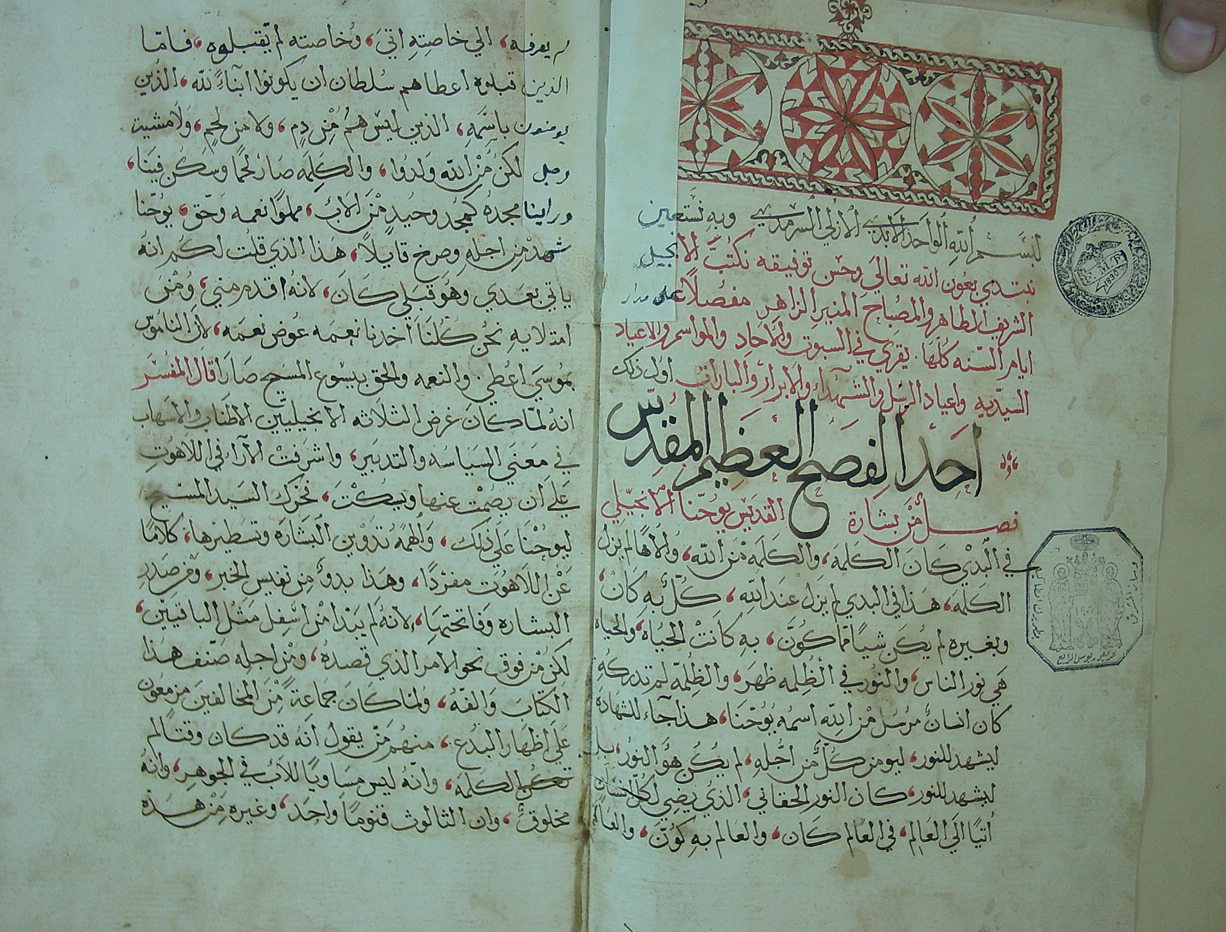 بسم الله الواحد الابدي الازلي السرمدي وبه نستعين
نبتدي بعون الله تعالى وحسن توفيقه نكتب الانجيل
الشريف الطاهر والمصباح المنير الزاهر مفصلاً على مدار
ايام السنه كلها يقرى في السبوت والاحاد والمواسم والاعياد
السيديه واعياد الرسل والشهداء والابرار والبارات اول ذلك
احد الفصح العظيم المقدس
فصل من بشارة القديس يوحنا الانجيلي
في البدي كان الكلمه، والكلمه من الله، والاها لم يزل
الكلمه، هذا في البدي لم يزل عند الله، كلٌ به كان،
وبغيره لم يكن شيًا مما كوّن، به كانت الحياه، والحياه
هي نور الناس، والنور في الظلمه ظهر، والظلمه لم تدركه
كان انسانٌ مرسل من الله اسمه يوحنا، هذا جاء للشهادة
ليشهد للنور، ليومن كلٌ من اجله، لم يكن هو النور، بل
ليشهد للنور، كان النور الحقاني، الذي يضي لكل انسان
اتيًا الي العالم، في العالم كان، والعالم به كوّن، والعالم
لم يعرفه، الي خاصته اتي، وخاصته لم يقبلوه، فامّا
الذين قبلوه اعطاهم سلطان ان يكونوا ابناءً لله، الذين
يومنون باسمه، الذين ليس هم من دم، ولا من لحم، ولا مشية
رجل لكن من الله ولدوا، والكلمه صار لحمًا وسكن فينا،
وراينا مجده كمجد وحيد من الاب، مملوا نعمه وحق، يوحنا
شهد من اجله وصرخ قايلاً، هذا الذي قلت لكم انه
ياتي بعدي وهو قبلي كان، لانه اقدم مني، ومن
امتلايه نحن كلنا اخدنا نعمه عوض نعمه، لان الناموس
بموسي اعطي، والنعمه والحق بيسوع المسيح صارا قال المفسر
انه لما كان غرض الثلاثه الانجيليين الاطناب والاسهاب
في معني السياسه والتدبير، واشرفت الآرآ في اللاهوت
علي ان يصمت عنها ويسكت، تحرك السيد المسيح
ليوحنا علي ذلك، والهمه تدوين البشاره وتسطيرها، كلامًا
عن اللاهوت مفردًا، وهذا بدوٌ من نفس الخبر، ومن صدر
البشاره وفاتحتها، لانه لم يبتدا من اسفل مثل الباقيين،
لكن من فوق نحو الامر الذي قصده، ومن اجله صنف هذا
الكتاب والفه، ولما كان جماعة من المخالفين مزمعون
علي اظهار البدع، منهم من يقول انه قد كان وقتا لم
تكن الكلمه، وانه ليس مساويًا للاب في الجوهر، وانه
مخلوق، وان الثالوث قنومًا واحد، وغيره من هذه